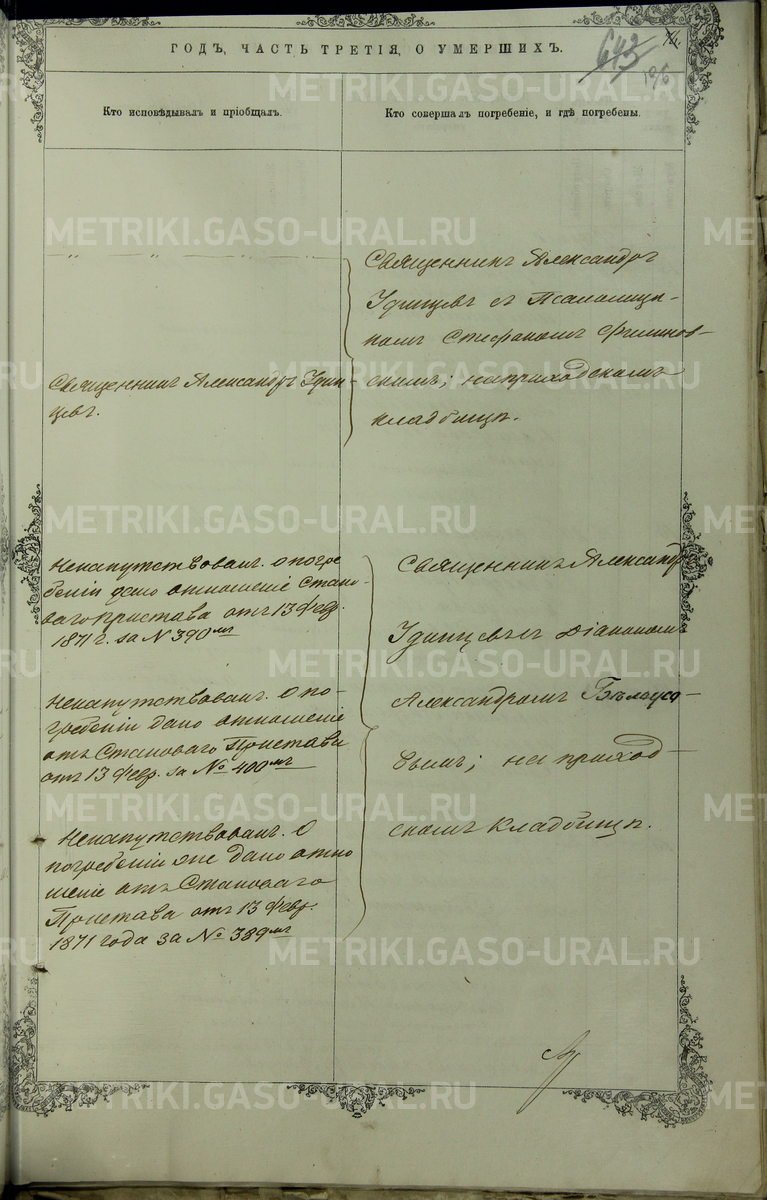 ГОДЪ, ЧАСТЬ ТРЕТІЯ, О УМЕРШИХЪ.
Кто исповѣдывалъ и пріобщалъ.
Кто совершалъ погребеніе, и гдѣ погребены.
Священникъ Александръ
Удинцевъ с Псаломщи-
комъ Стефаномъ Филинов-
скимъ; на приходскомъ
кладбищѣ.
Священникъ Александръ Удин-
цевъ.
Ненапутствованъ. О погре
беніи дано отношеніе Стано-
ваго пристава отъ 13 Февр.
1871 г. за № 390мъ
Ненапутствованъ. О по-
гребеніи дано отношеніе
отъ Становаго Пристава
отъ 13 февр. за № 400мъ
Ненапутствованъ. О
погребеніи дано отно
шеніе отъ Становаго
Пристава отъ 13 Февр.
1871 года за № 389мъ
Священникъ Александръ
Удинцевъ съ Діакономъ
Александромъ Бѣльусо-
вымъ; на приход-
скомъ кладбищѣ.
METRIKI.GASO-URAL.RU